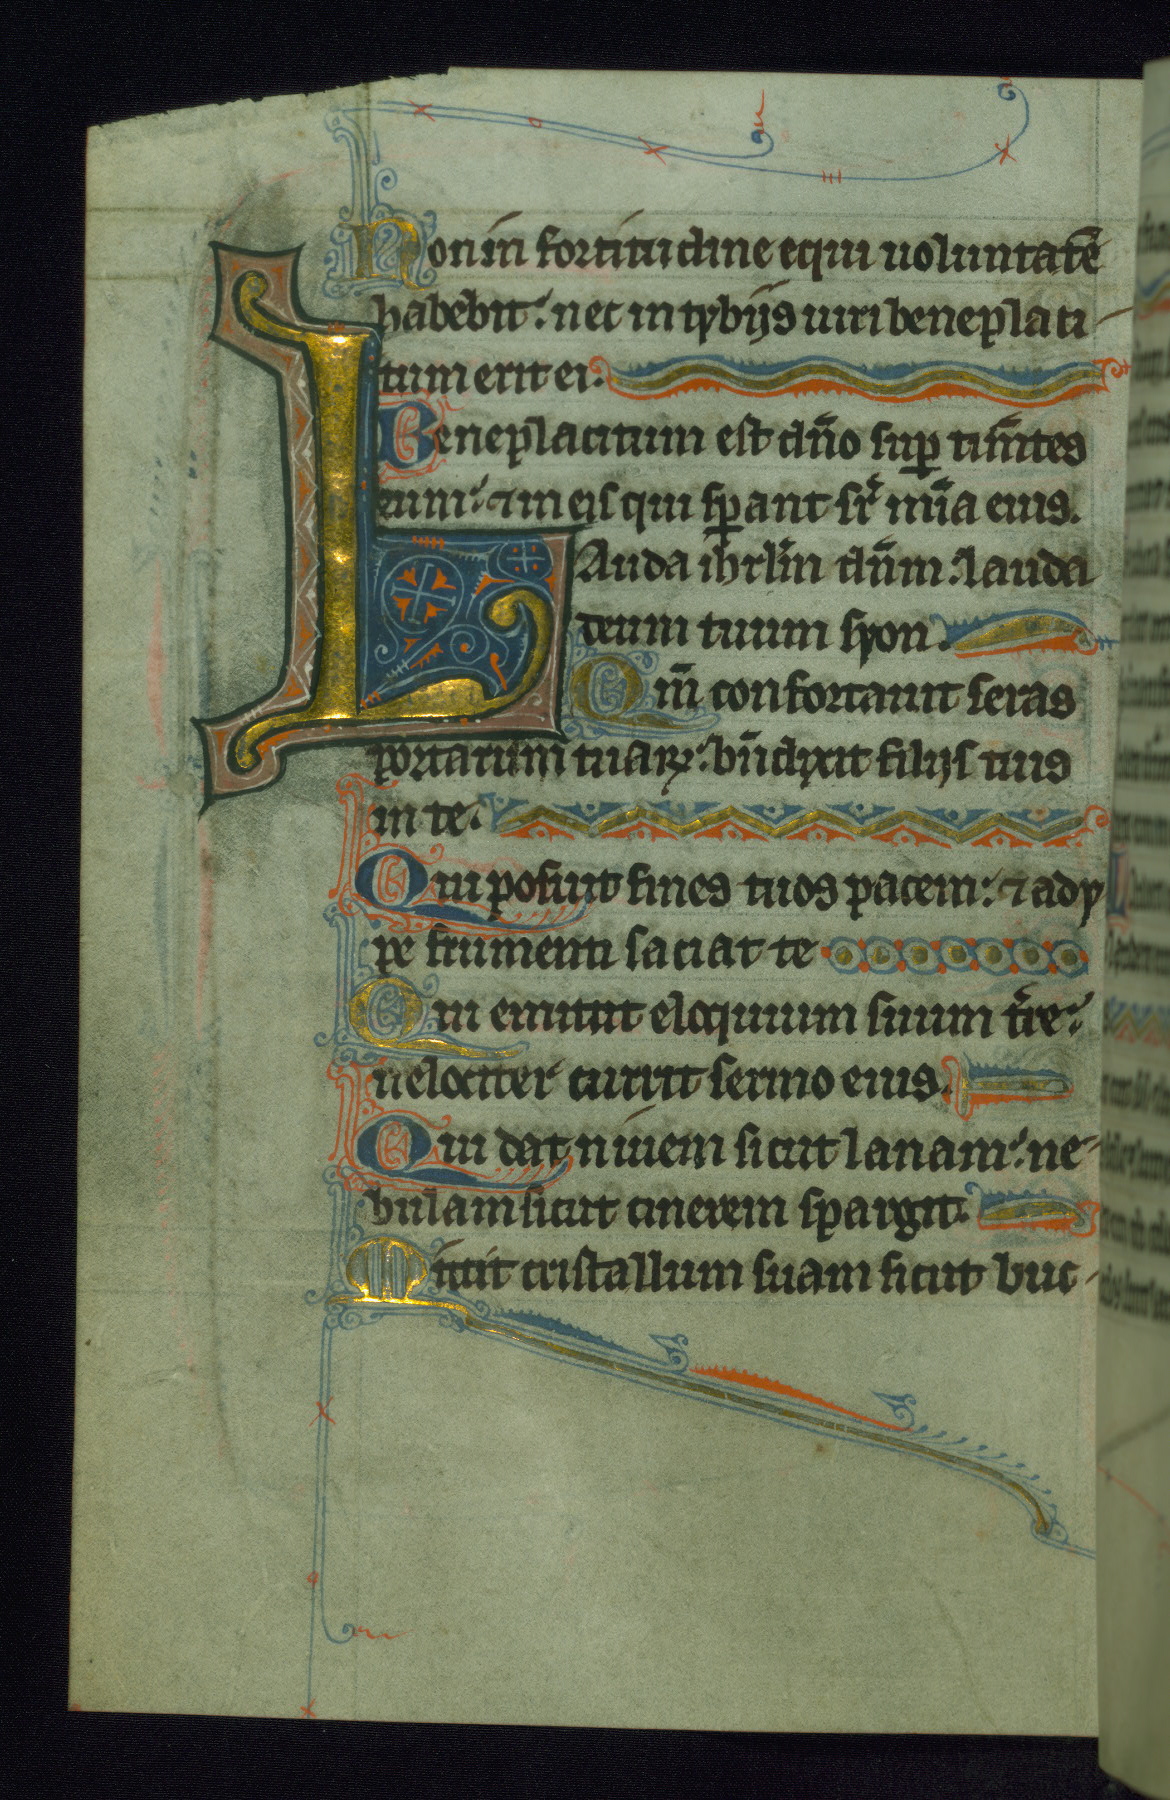 Non in fortitudine equi uoluntatē
habebit: nec in tybijs uiri beneplaci
tum erit ei.
Beneplacitum est dn̄o sup̱ tim̄tes
eum: ⁊ in eis qui sp̱ant sr̄ mīa eius.
LAuda ihrl̄m dn̄m: lauda
deum tuum syon.
Qm̄ confortauit seras
portarum tuarꝝ: bn̄dixit filijs tuis
in te.
Qui posuit fines tuos pacem: ⁊ adyp
pe frumenti saciat te
Qui emittit eloquium suum tr̄e:
uelociter currit sermo eius.
Qui dat niuem sicut lanam: ne-
bulam sicut cinerem spargit.
Mittit cristallum suam sicut buc-